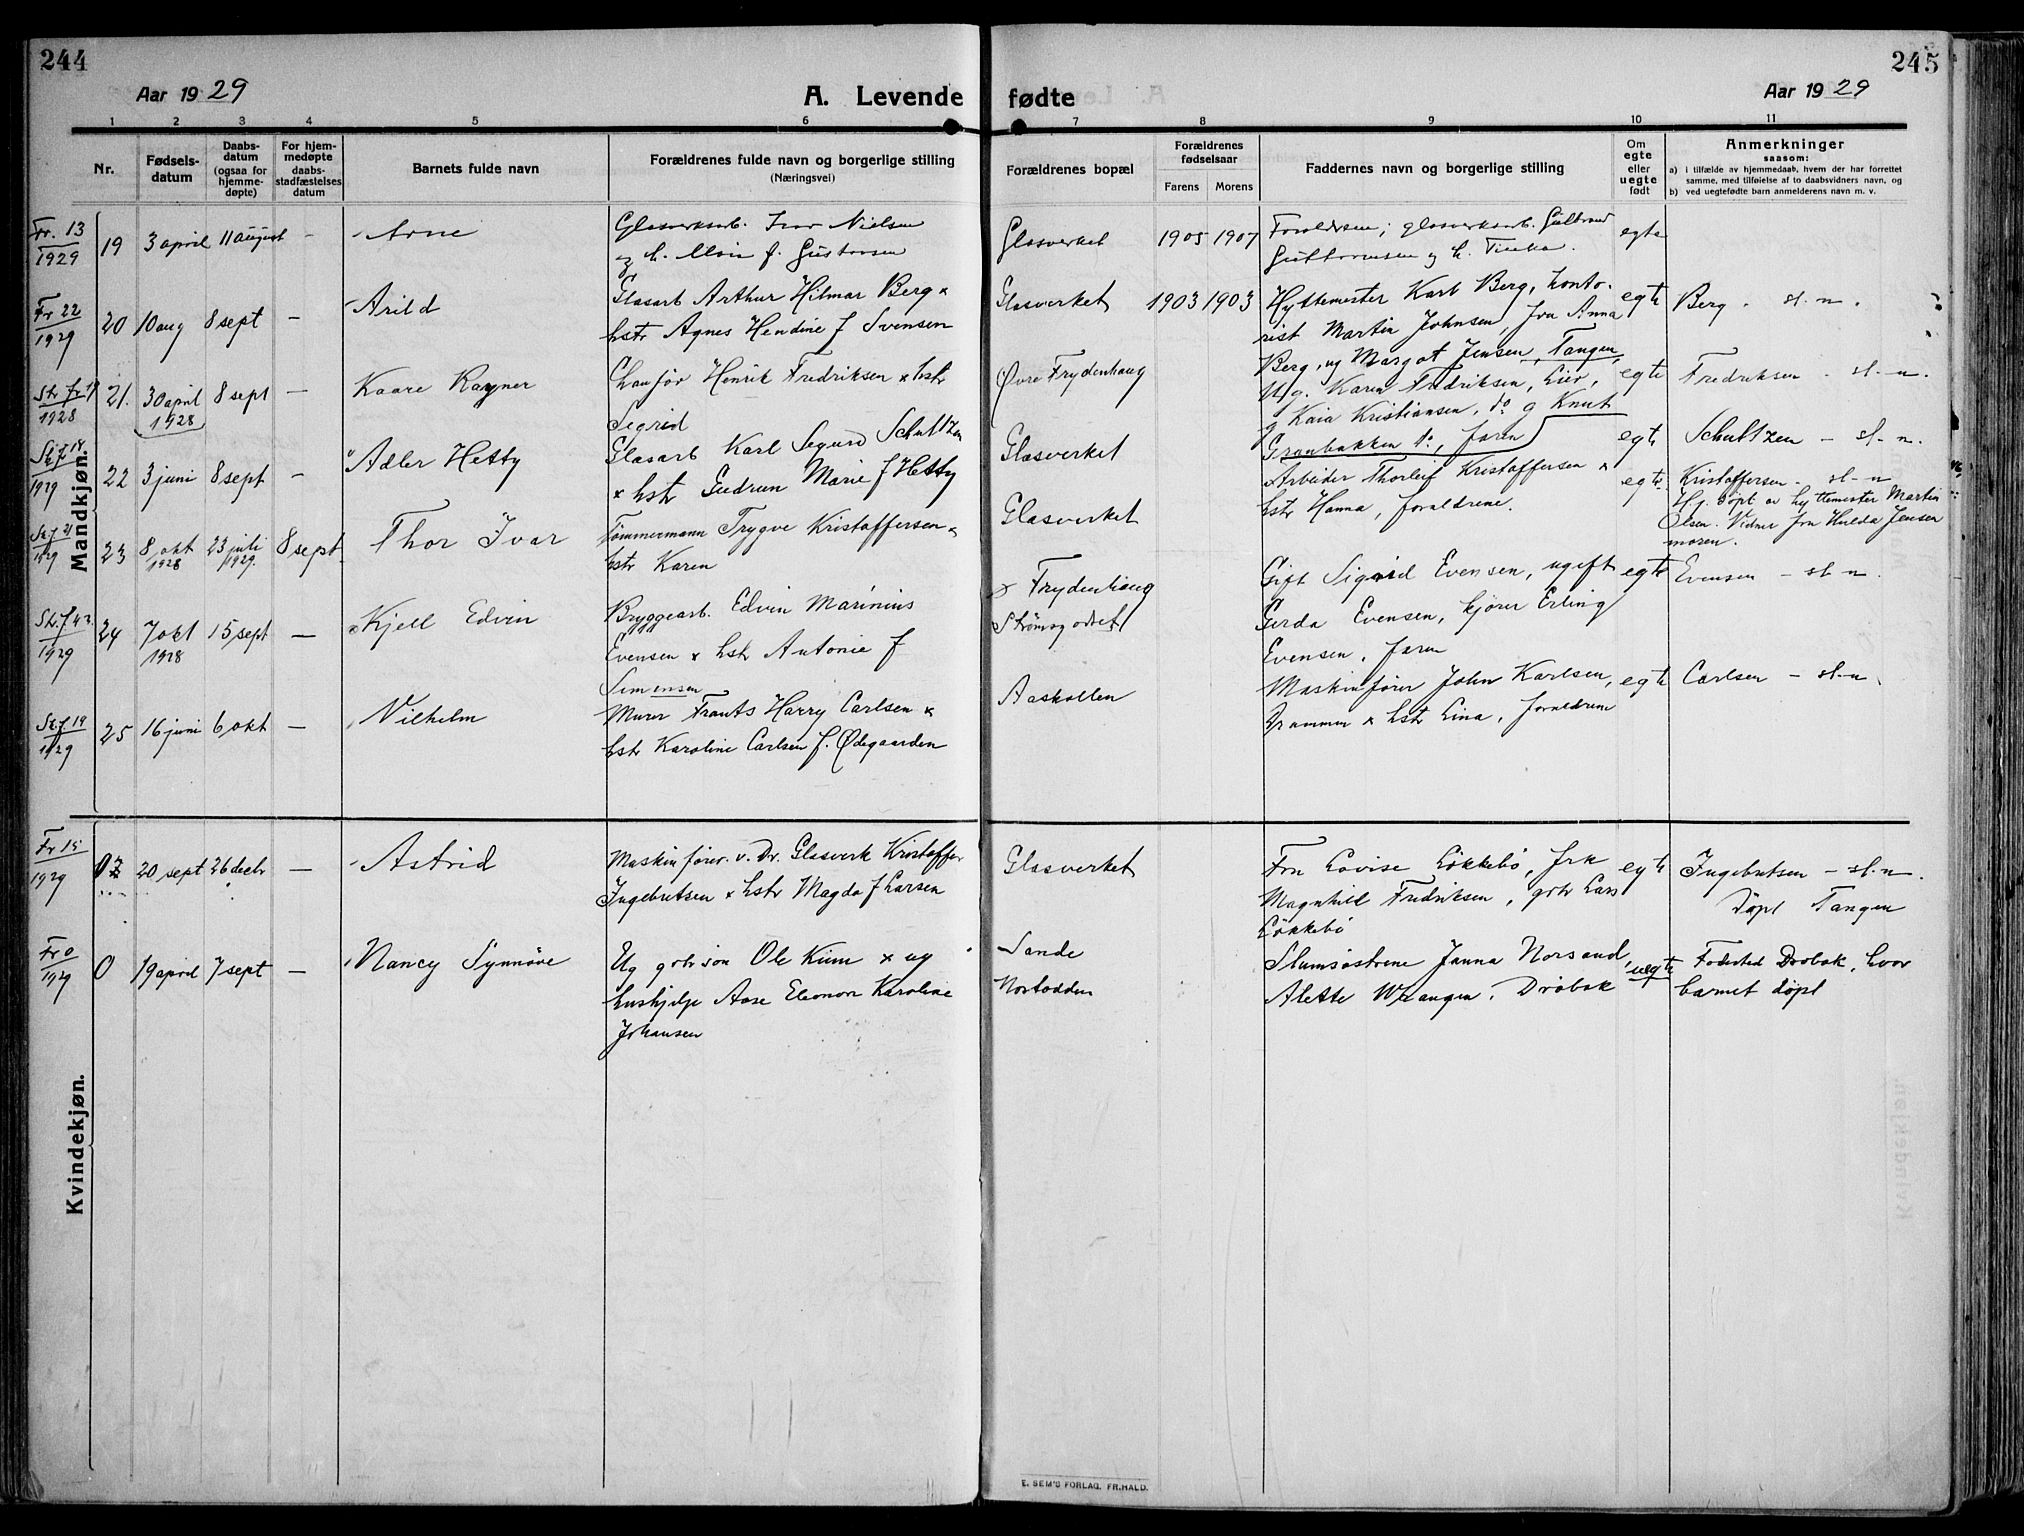 244
Aar 1929
A. Levende
1 2 3 4 5 6
Nr.
Fødsels-
datum
Daabs-
datum
(ogsaa for
hjemme-
døpte)
For hjem-
medøpte
daabs-
stadfæstelses
datum
Barnets fulde navn
Forældrenes fulde navn og borgerlige stilling
(Næringsvei)
Mandkjøn.
Fr. 13
1929
19 3 april 11 august - Arne
Glasverksarb. Ivar Nielsen
og h. f. Gustavsen
Fr 22
1929
20 10 aug 8 sept — Arild
Glasarb Arthur Hilmar Berg x
hstr Agnes Hendine f Svensen
1928
21. 30 april 8 sept — Kaare Ragner
1928
Chaufør Henrik Fredriksen x hstr
Sigrid
1929
22 3 juni 8 sept — Adler Hetty
Glasarb Karl Segurd Schultzen
x hstr Gudrun Marie f Hetty
1929
23 8 okt 23 juli 8 sept. Thor Ivar
1928 1929.
Tømmermann Trygve Kristoffersen x
hstr Karen
1929
24 7 okt 15 sept — Kjell Edvin
1928
Bryggearb. Edvin Marinius
Evensen x hstr Antonie f
Simensen
1929
25 16 juni 6 okt — Vilhelm
Murer Frants Harry Carlsen x
hstr Karoline Carlsen f. Ødegaarden
Kvindekjøn.
Fr 15
1929
20 sept 26 decbr — Astrid
Maskinfører v. Dr. Glasverk Kristoffer
Ingebretsen x hstr Magda f Larsen
Fr 0
1929
0 19 april 7 sept — Nancy Synnøve
Ug gbrsøn Ole Kiim x ug
hushjelp Aase Eleonor Karoline
Johansen
245
fødte
Aar 1929
7 8 9 10 11
Forældrenes bopæl
Forældrenes
fødselsaar
Farens Morens
Faddernes navn og borgerlige stilling
Om
egte
eller
uegte
født
Anmerkninger
saasom:
a) i tilfælde av hjemmedaab, hvem der har forrettet
samme, med tilføielse af to daabsvidners navn, og
b) ved uegtefødte barn anmelderens navn m. v.
Glasverket 1905 1907
Forældrene; glasverksarb. Gulbrand
Gulbrandsen og h. Tinka.
egte
Glasverket 1903 1903
Hyttemester Karl Berg, konto-
rist Martin Johnsen, fru Anna
Berg, ug Margot Jensen, Tangen,
egte
Berg. sl. n.
Øvre Frydenhaug
Ug. Karen Fredriksen, Lier,
g Kaia Kristiansen, do g Knut
Granbakken do, faren
egte
Fredriksen - sl. n.
Glasverket
egte
Schultzen - sl. n.
Glasverket
Arbeider Thorleif Kristoffersen x
hstr Hanna, forældrene.
egte.
Kristoffersen. sl-n
Hj. døpt av hyttemester Martin
Olsen. Vidner fru Hulda Jensen
moren.
x Frydenhaug
Strømsgodset
Gift Sigrid Evensen, ugift
Gerda Evensen, kjører Erling
Evensen. faren
egte
Evensen - sl-n.
Aaskollen
Maskinfører John Karlsen,
Drammen x hstr Lina, forældrene
egte
Carlsen - sl-n.
Glasverket
Fru Lovise Løkkebø, frk
Magnhill Fredriksen, gbr Lars
Løkkebø
egte
Ingebretsen - sl. n.
Døpt Tangen
Sande
Notodden
Slumsøstrene Janna Norsand,
Alette Wrangen, Drøbak
uegte
Fødested Drøbak, hvor
barnet døpt
E. SEM'S FORLAG. FR.HALD.